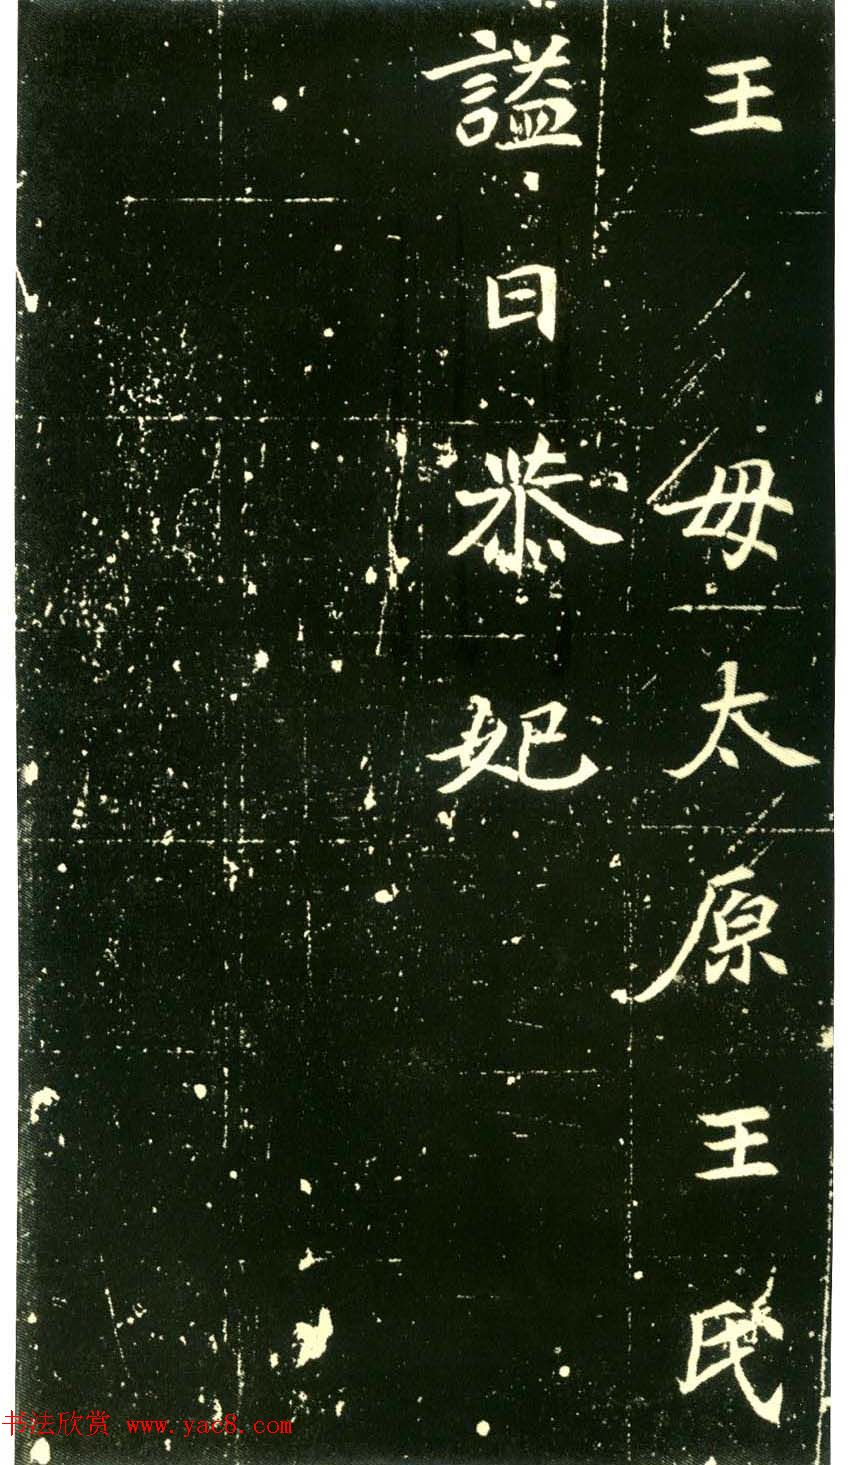 王毋太原王氏
謚曰恭妃
书法欣赏 www.yac8.com